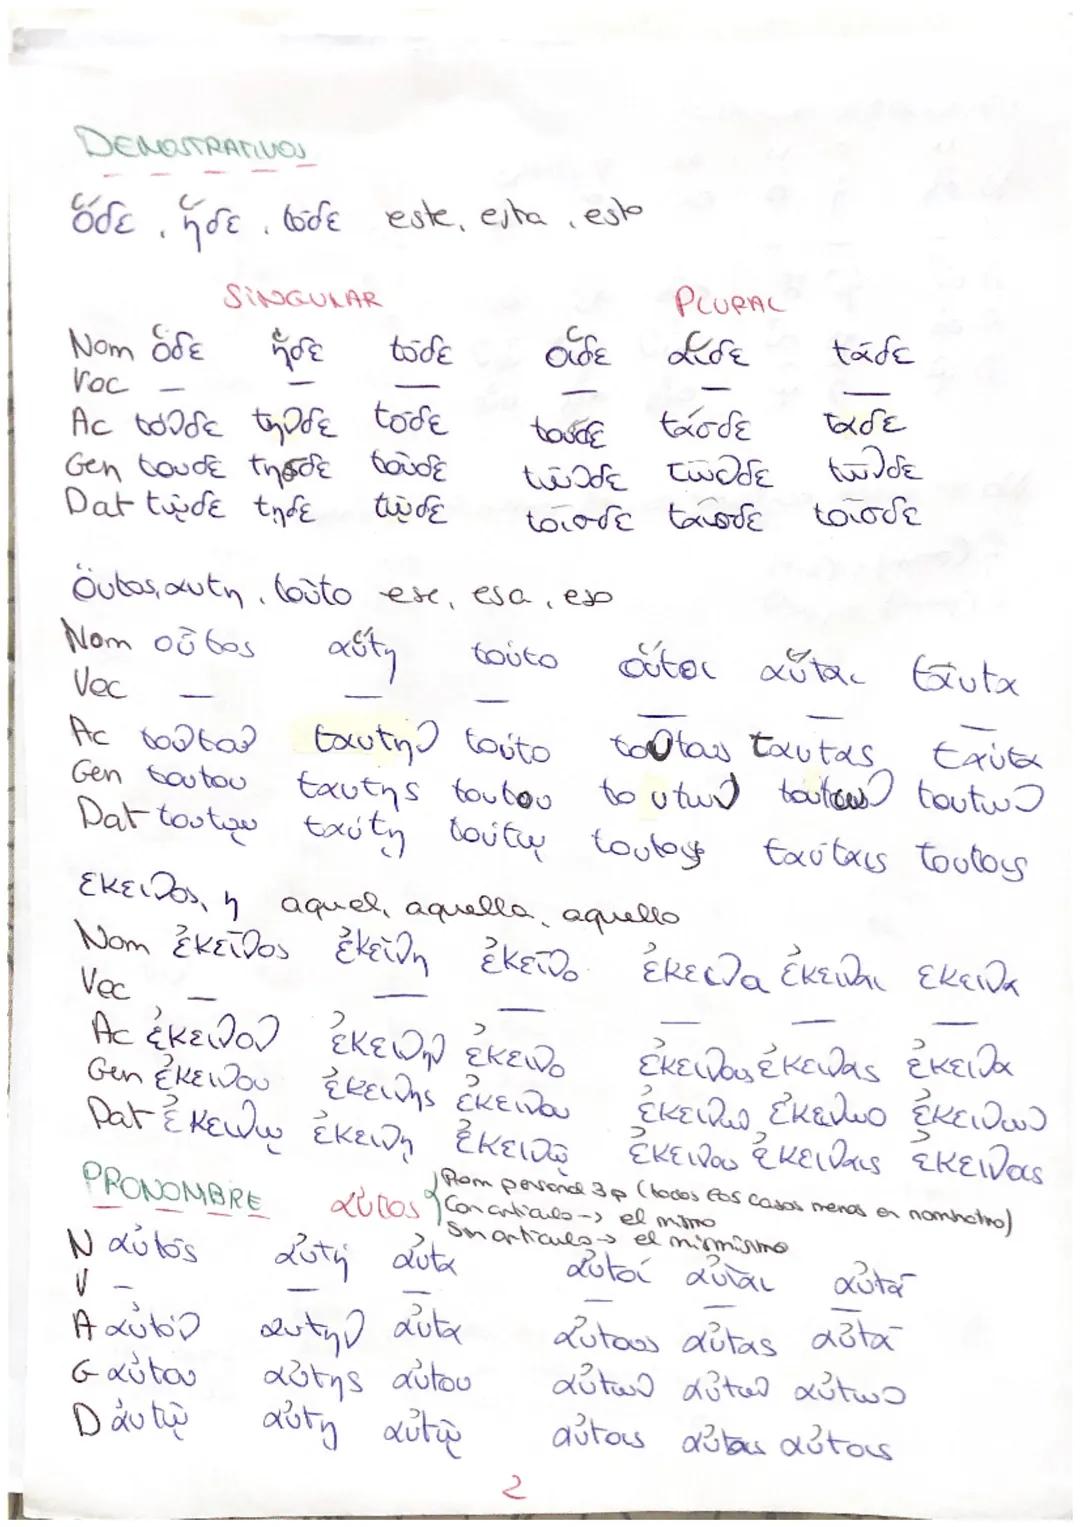 DEMOSTRATIVOS
ὅδε, ἥδε, τόδε este, esta, esto
SINGULAR PLURAL
Nom ὅδε ἥδε τόδε οἵδε αἵδε τάδε
Voc — — — — — —
Ac τόνδε τηνδε τόδε τουσδε τάσδε ταδε
Gen τουδε τησδε τοῦδε τῶνδε τῶνδε τῶνδε
Dat τῷδε τῃδε τῷδε τοῖσδε ταῖσδε τοῖσδε
Ὅυτος, αυτη, τοῦτο ese, esa, eso
Nom οὗτος αὕτη τοῦτο οὗτοι αὗται ταῦτα
Voc — — — — — —
Ac τοῦτον ταυτην τοῦτο τούτους ταυτας ταῦτα
Gen τουτου ταυτης τουτου τουτων τούτων τουτων
Dat τουτῳ ταύτῃ τούτῳ τουτοις ταύταις τουτοις
εκεινος, η aquel, aquella, aquello
Nom ἐκεῖνος ἐκεῖνη ἐκεῖνο ἐκεινα ἐκειναι εκεινα
Voc — — — — — —
Ac ἐκεινον ἐκεινην ἐκεινο ἐκεινους ἐκεινας ἐκεινα
Gen ἐκεινου ἐκεινης ἐκεινου ἐκεινων ἐκεινων ἐκεινων
Dat ἐκεινῳ ἐκεινη ἐκεινῷ ἐκεινοις ἐκειναις ἐκεινοις
PRONOMBRE αὐτος
Prom personal 3p (todos los casos menos en nominativo)
Con articulo -> el mismo
Sin articulo -> el mismisimo
N αὐτός αὐτή αὐτα αὐτοί αὐταί αὐτά
V — — — — — —
A αὐτόν αυτην αὐτα αὐτους αὐτας αὐτά
G αὐτου αὐτης αὐτου αὐτων αὐτων αὐτων
D αὐτῷ αὐτη αὐτῷ αὐτοις αὐταις αὐτοις
2